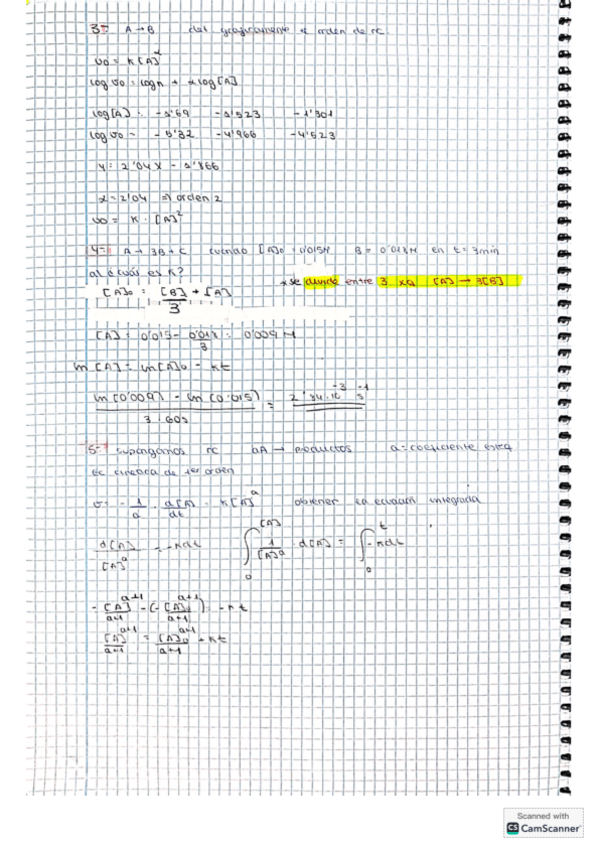 3- A→B det graficamente el orden de rc
v0 = K[A]^α
log v0 = log K + α log[A]
log[A] - -1'523 -1'301
log v0 - -4'966 -4'523
y = 2'04x -
α = 2'04 ⇒ orden 2
v0 = K · [A]²
4- A → 3B + C cuando [A]0 = 0'015M B = en t = 3min
a) d cuál es K?
* se divide entre 3 xq [A] → 3[B]
[A]0 = [B]/3 + [A]
[A] = 0'015 - 0'018/3 = 0'009 M
ln[A] = ln[A]0 - Kt
(ln(0'009) - ln(0'015))/(3·60s) = 2'84·10^-3 s^-1
5- supongamos rc aA → productos a = coeficiente
cinetica de 1er orden
v = -1/a · d[A]/dt = K[A]^a obtener la ecuación integrada
d[A]/[A]^a = -Kdt ∫_0^[A] 1/[A]^a · d[A] = ∫_0^t -Kdt
-[A]^a+1/a+1 - (-[A]^a+1/a+1) = -Kt
[A]^a+1/a+1 = [A]0^a+1/a+1 - Kt
Scanned with
CS CamScanner